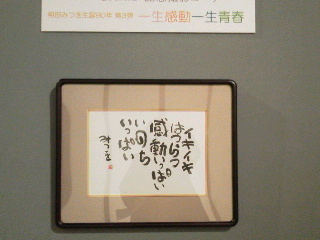 相田みつを生誕90年 第3弾 一生感動一生青春
イキイキ
はつらつ
感動いっぱい
いのち
いっぱい
みつを